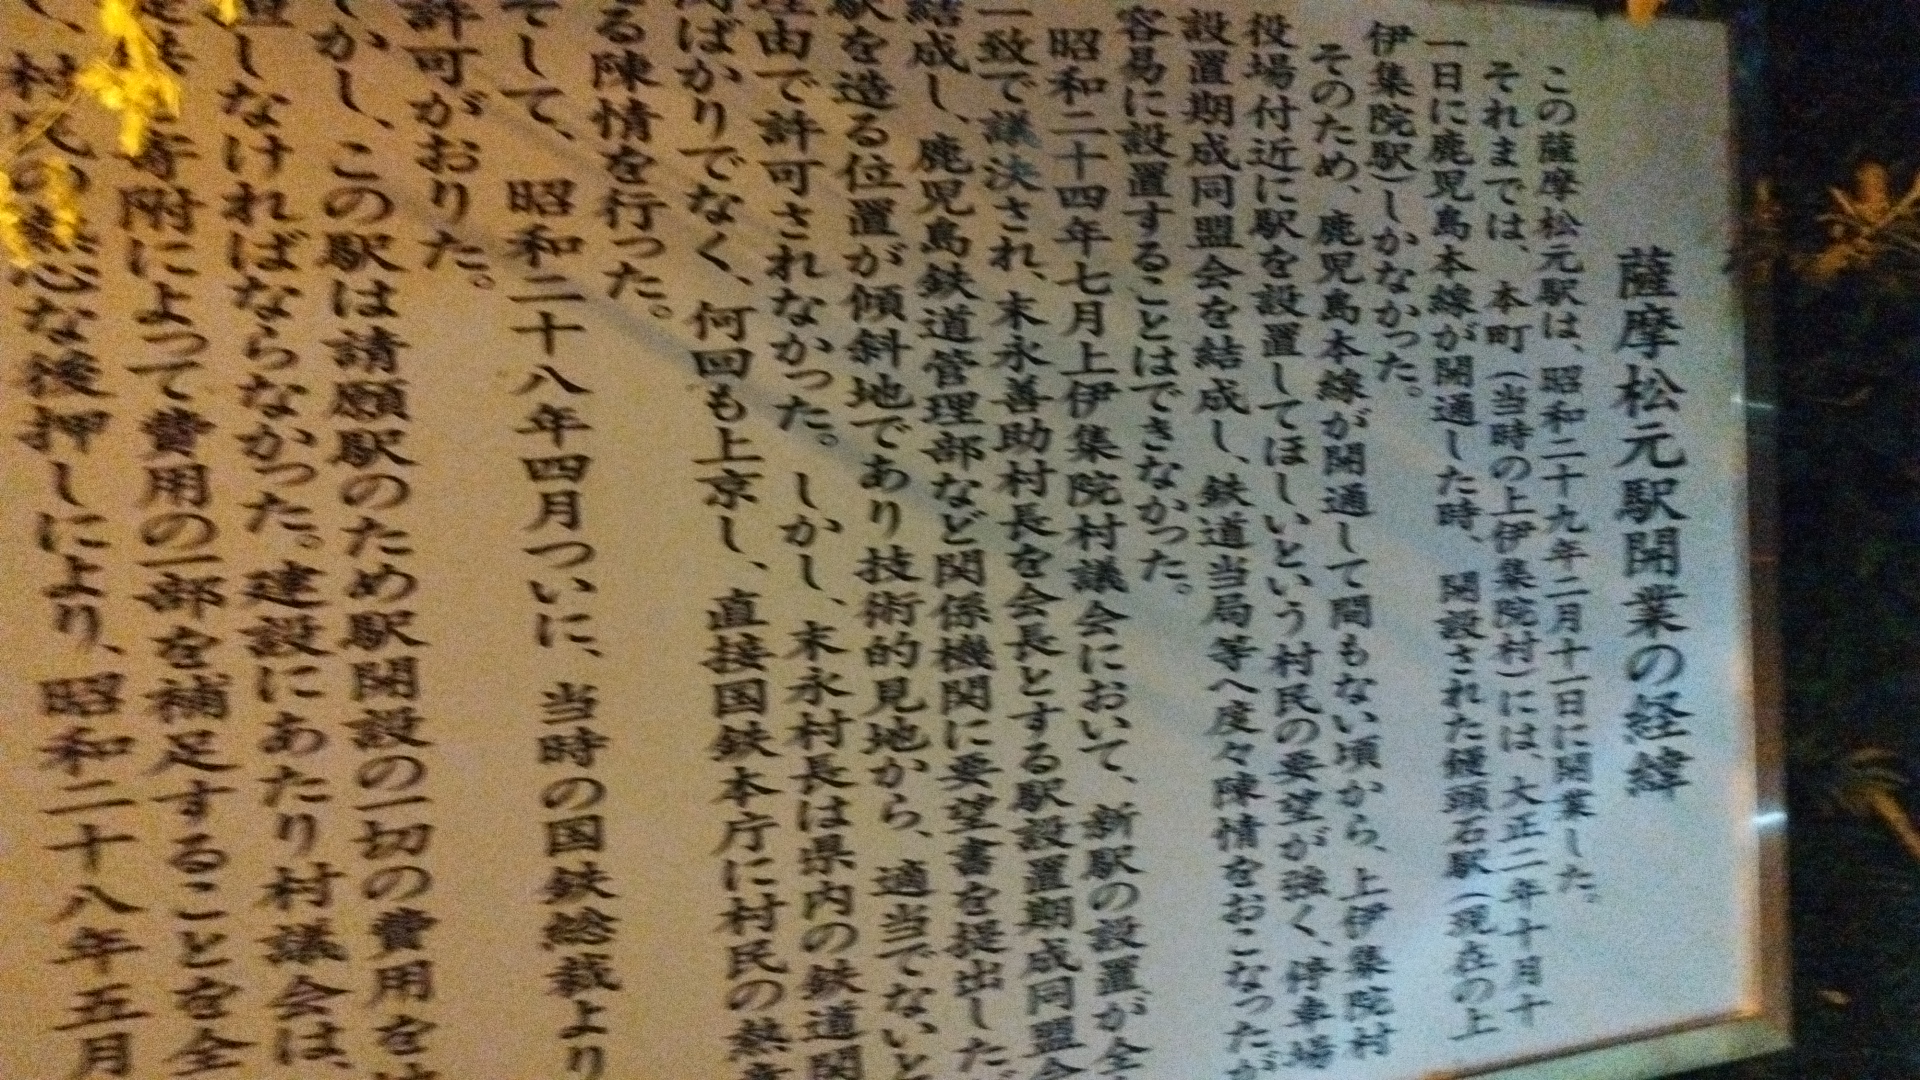 薩摩松元駅開業の経緯
この薩摩松元駅は、昭和二十九年二月十一日に開業した。
それまでは、本町（当時の上伊集院村）には、大正二年十月十
一日に鹿児島本線が開通した時、開設された饅頭石駅（現在の上
伊集院駅）しかなかった。
そのため、鹿児島本線が開通して間もない頃から、上伊集院村
役場付近に駅を設置してほしいという村民の要望が強く、停車場
設置期成同盟会を結成し、鉄道当局等へ度々陳情をおこなったが
容易に設置することはできなかった。
昭和二十四年七月上伊集院村議会において、新駅の設置が全
一致で議決され、末永善助村長を会長とする駅設置期成同盟会
結成し、鹿児島鉄道管理部など関係機関に要望書を提出した
駅を造る位置が傾斜地であり技術的見地から、適当でないと
理由で許可されなかった。しかし、末永村長は県内の鉄道関
ばかりでなく、何回も上京し、直接国鉄本庁に村民の熱
る陳情を行った。
そして、昭和二十八年四月ついに、当時の国鉄総裁より
許可がおりた。
かし、この駅は請願駅のため駅開設の一切の費用を
しなければならなかった。建設にあたり村議会は、
寄附によって費用の一部を補足することを全
村民の熱心な後押しにより、昭和二十八年五月